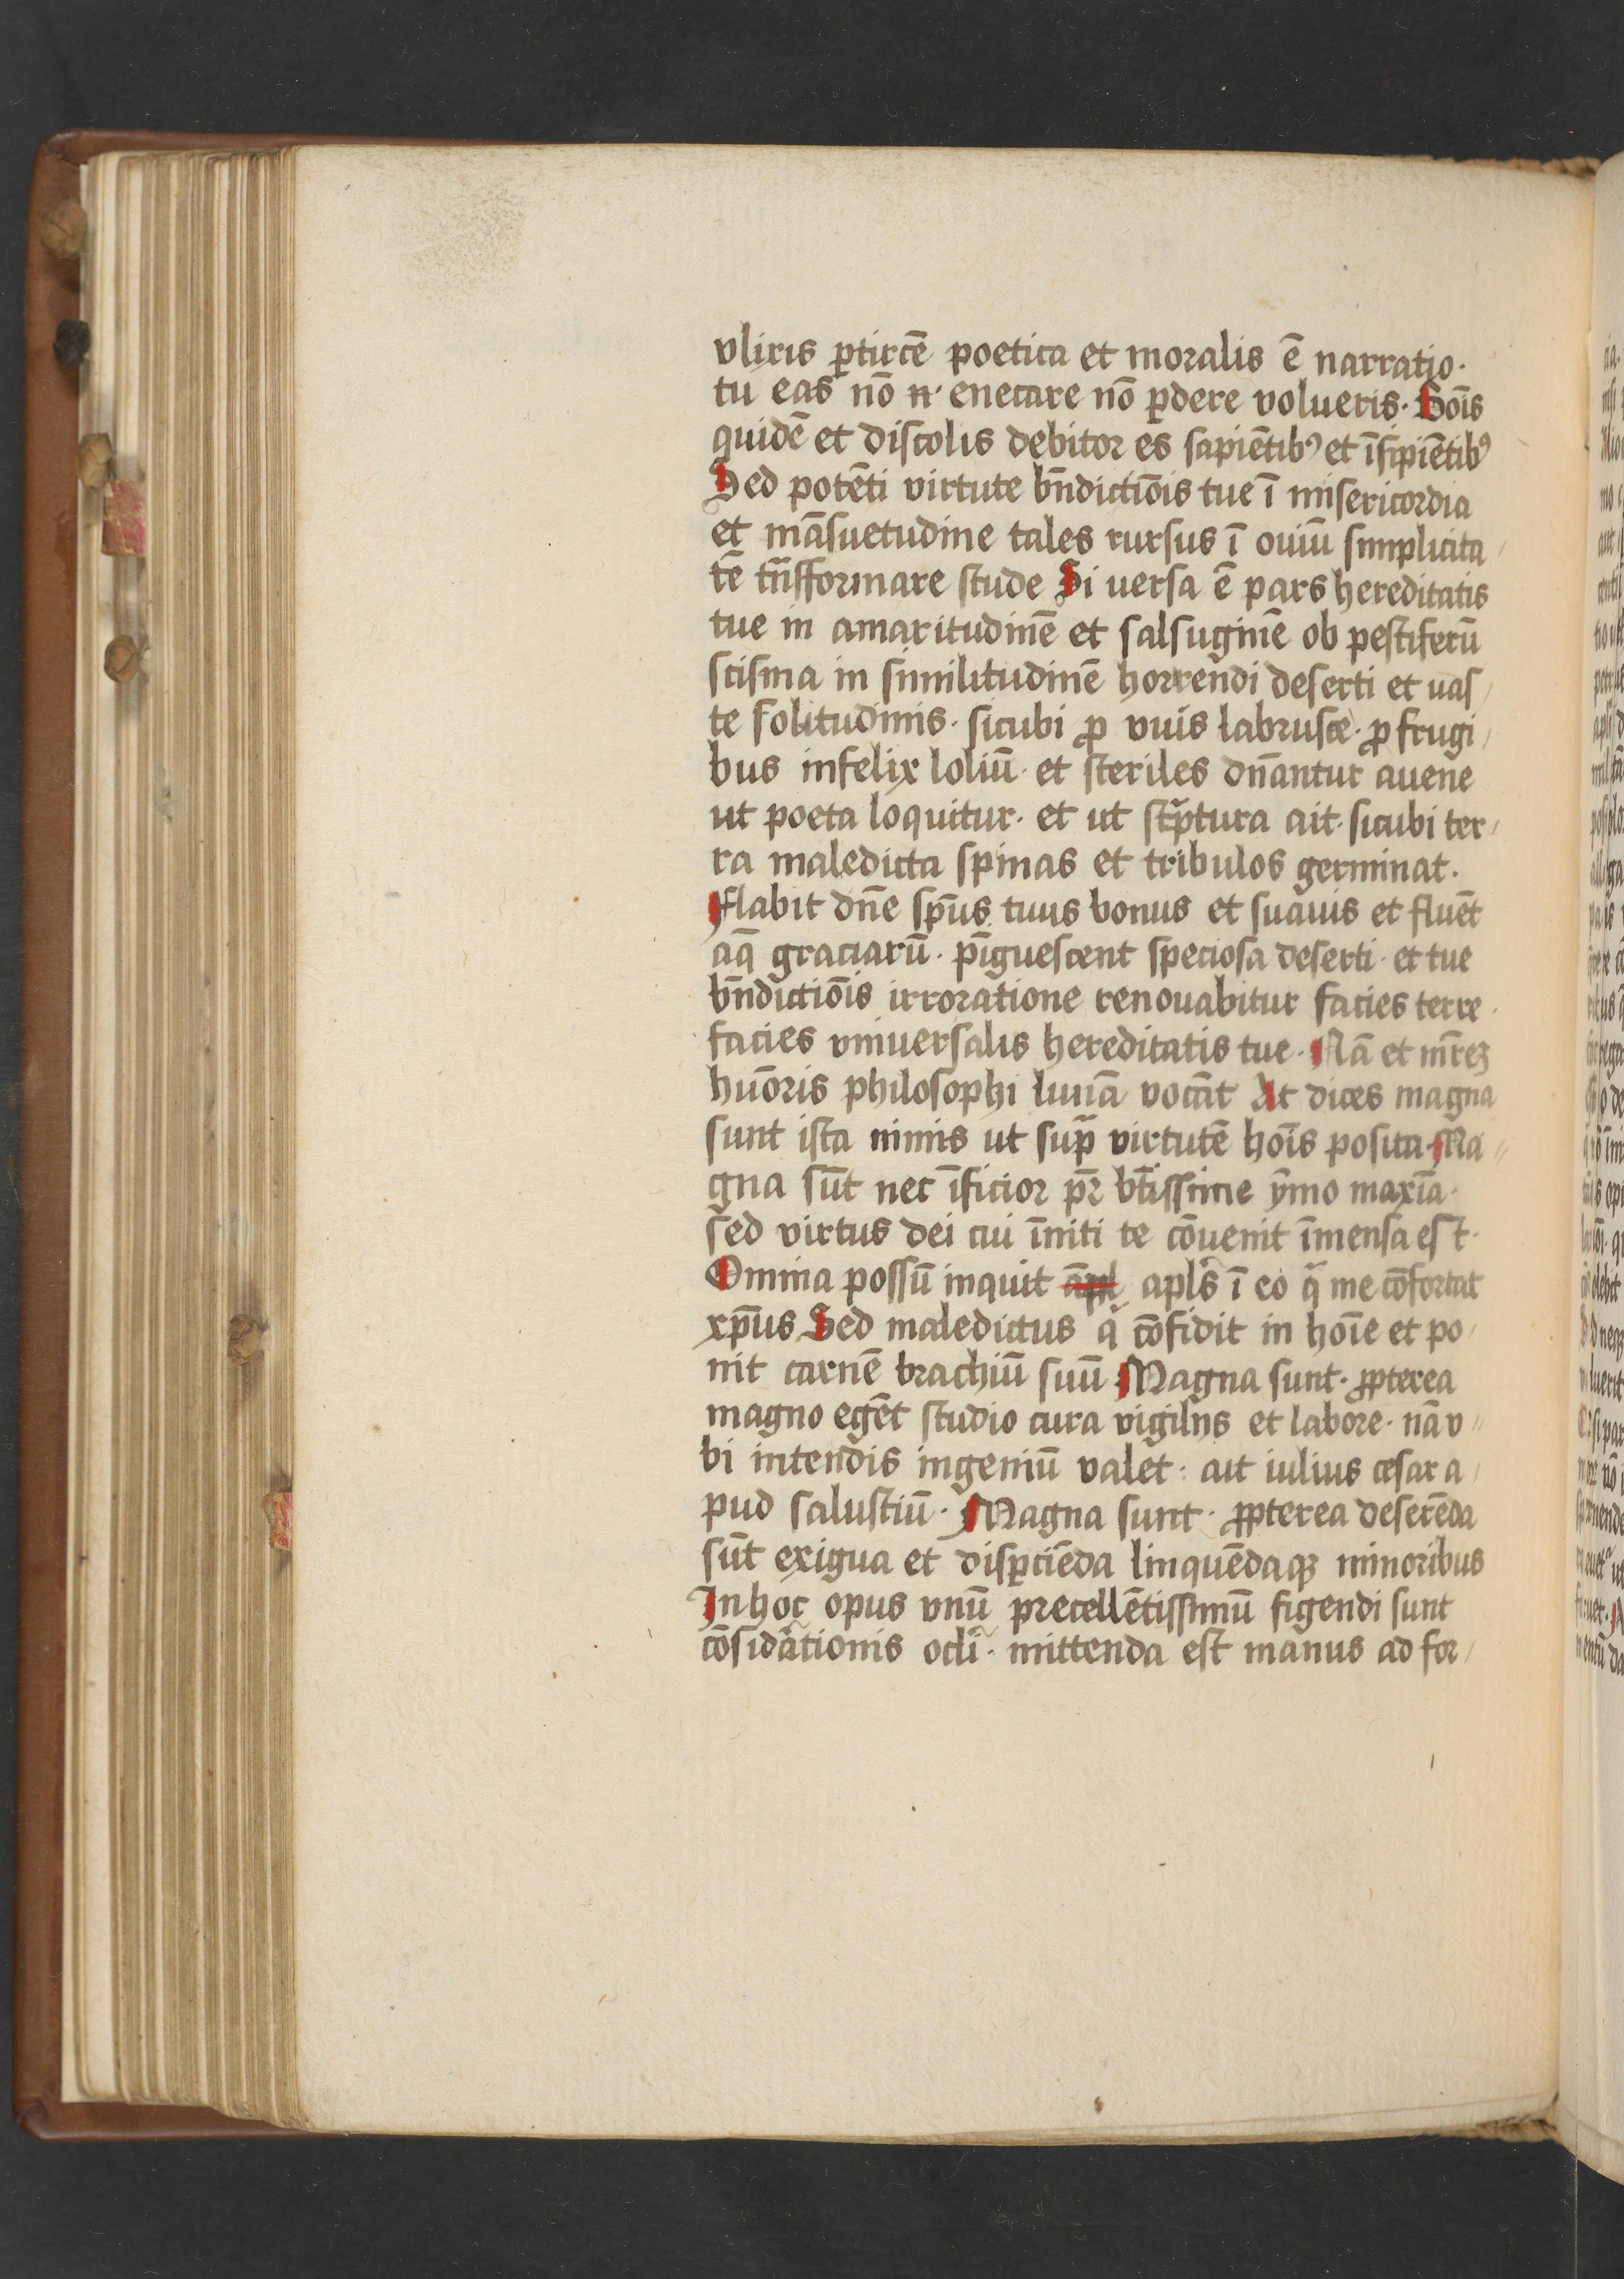 vlixis ꝑticē poetica et moralis ē narratio·
tu eas nō n· enecare nō ꝑdere volueris· Bois
quidē et discolis debitor es sapiētibꝰ et īsipiētibꝰ
Sed potēti virtute bn̄dictiōis tue ī misericordia
et māsuetudine tales rursus ī ouiū simplicita/
tē tn̄sformare stude Si uersa ē pars hereditatis
tue in amaritudinē et salsuginē ob pestiferū
scisma in similitudinē horrendi deserti et uas/
te solitudinis· sicubi ꝓ vuis labrusce· ꝓ frugi/
bus infelix loliū· et steriles dn̄antur auene
ut poeta loquitur· et ut sc̄ptura ait· sicubi ter/
ra maledicta spinas et tribulos germinat·
Flabit dn̄e sp̄us tuus bonus et suauis et fluēt
aq̄ graciarū· p̄iguescent speciosa deserti· et tue
bn̄dictiōis irroratione renouabitur facies terre·
facies vniuersalis hereditatis tue· Nā et mr̄eꝫ
hūoris philosophi lunā vocāt At dices magna
sunt ista nimis ut supͣ virtutē hoīs posita· Ma//
gna sūt nec īficior pr̄ bt̄issime ȳmo maxīa·
sed virtus dei cui īniti te cōuenit īmensa est·
Omnia possū inquit apl̄s ī eo qͥ me cōfortat
xp̄us Sed maledictus qͥ cōfidit in hoīe et po/
nit carnē brachiū suū Magna sunt· ꝓpterea
magno egēt studio cura vigilijs et labore· nā v//
bi intendis ingeniū valet· ait iulius cesar a/
pud salustiū· Magna sunt· ꝓpterea deserēda
sūt exigua et disꝑciēda linquēdaqꝫ minoribus
In hoc opus vnū precellētissimū figendi sunt
cōsidāationis ocli· mittenda est manus ad for/